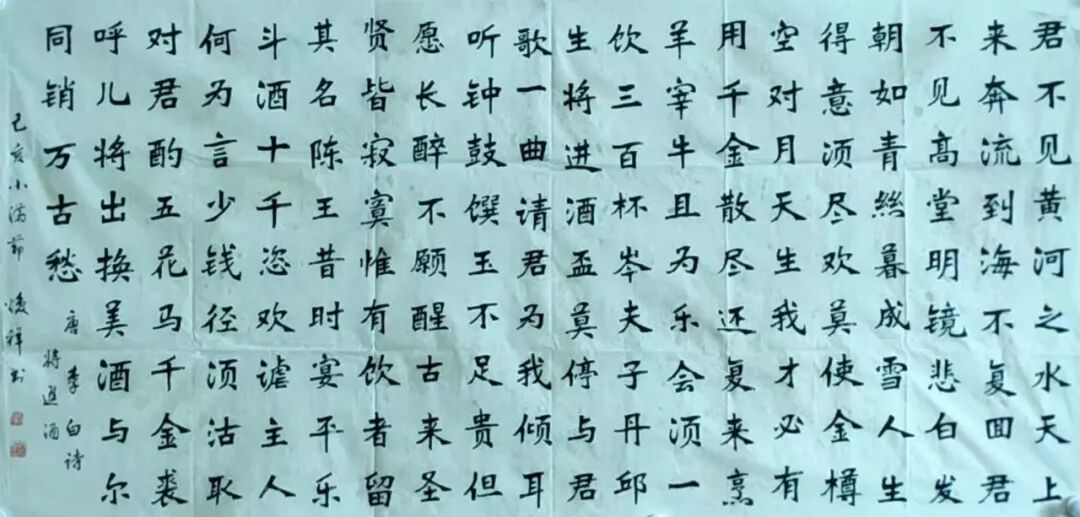 君不见黄河之水天上
来奔流到海不复囬君
不见高堂明镜悲白发
朝如青絲暮成雪人生
得意须尽欢莫使金樽
空对月天生我才必有
用千金散尽还复来烹
羊宰牛且为乐会须一
饮三百杯岑夫子丹邱
生将进酒盃莫停与君
歌一曲请君为我倾耳
听钟鼓馔玉不足贵但
愿长醉不願醒古来圣
贤皆寂寞惟有饮者留
其名陈王昔时宴平乐
斗酒十千恣欢谑主人
何为言少钱径须沽取
对君酌五花马千金裘
呼儿将出换美酒与尔
同销万古愁
唐李白诗
将進酒
己亥小满节 俊祥书